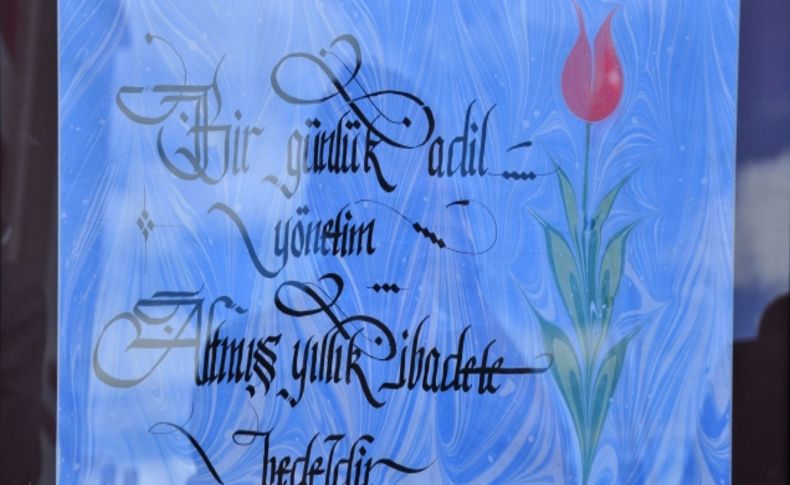 Bir günlük adil
yönetim
Altmış yıllık ibadete
bedeldir